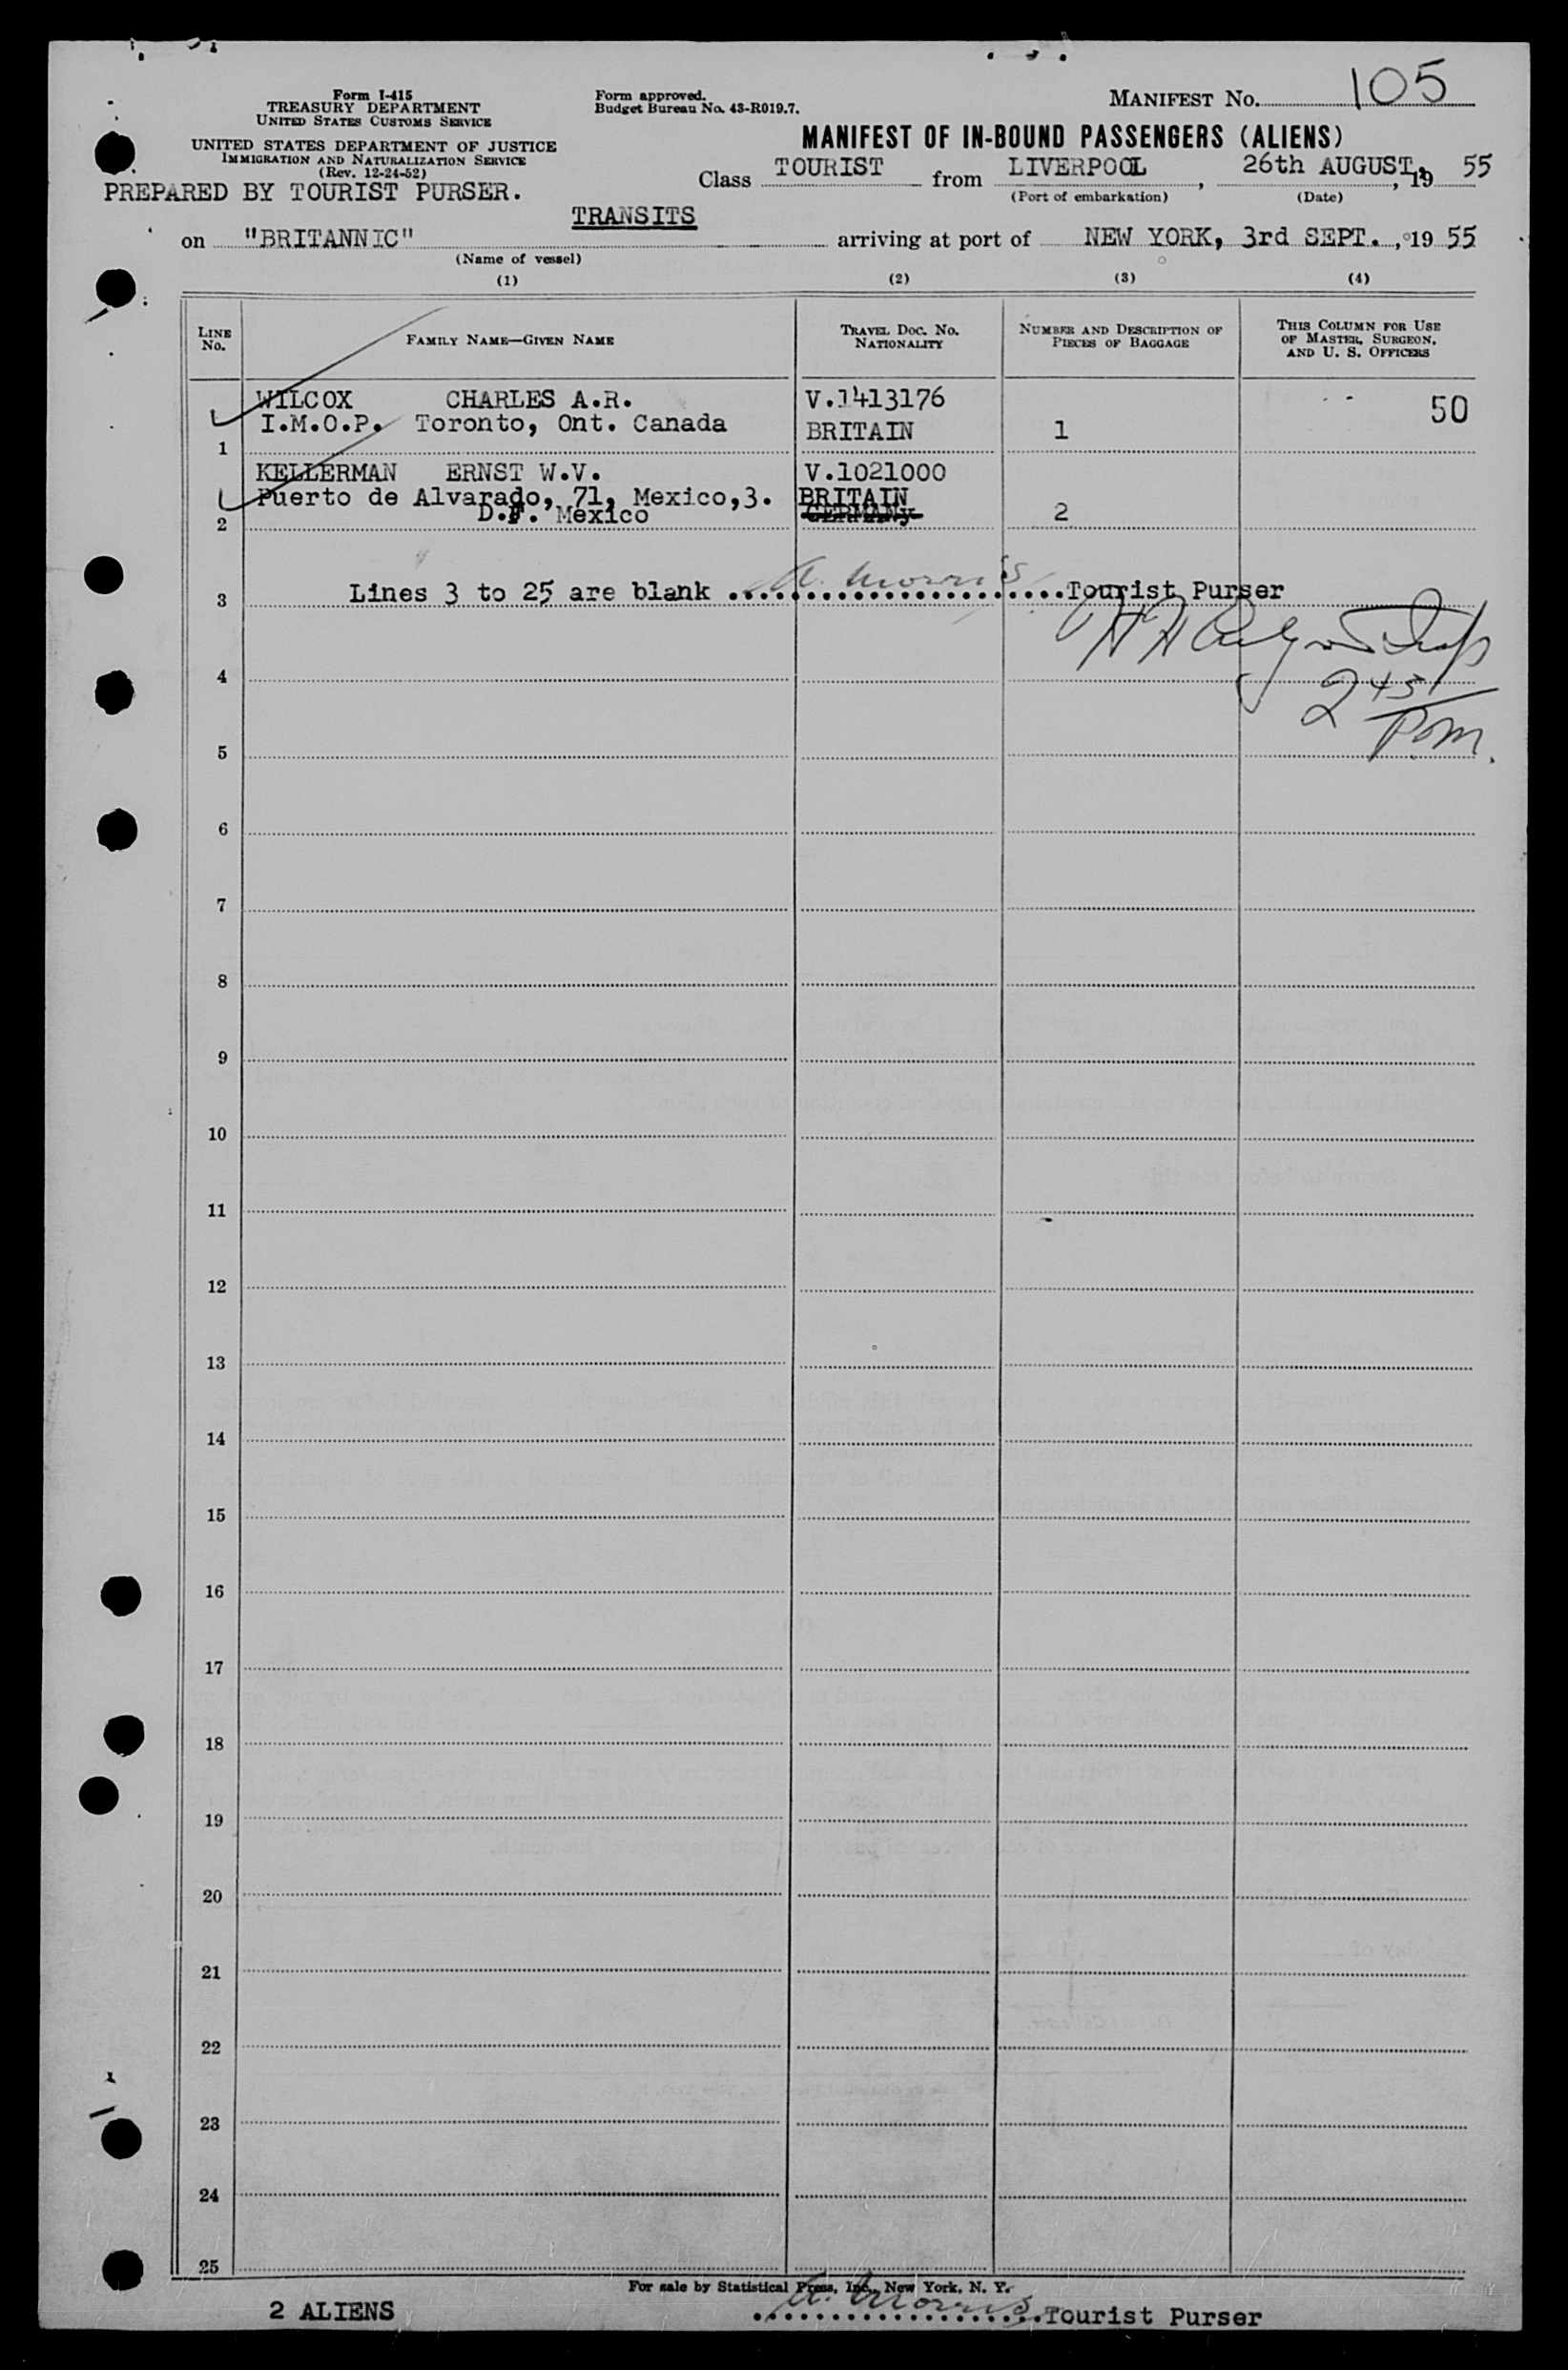 Form I-415
TREASURY DEPARTMENT
UNITED STATES CUSTOMS SERVICE
UNITED STATES DEPARTMENT OF JUSTICE
IMMIGRATION AND NATURALIZATION SERVICE
(Rev. 12-24-52)
PREPARED BY TOURIST PURSER.
Form approved.
Budget Bureau No. 43-R019.7.
MANIFEST No. 105
MANIFEST OF IN-BOUND PASSENGERS (ALIENS)
Class TOURIST from LIVERPOOL, 26th AUGUST, 19 55
(Port of embarkation) (Date)
TRANSITS
on "BRITANNIC" arriving at port of NEW YORK, 3rd SEPT., 19 55
(Name of vessel)
(1) (2) (3) (4)
LINE No. FAMILY NAME—GIVEN NAME TRAVEL DOC. No. NATIONALITY NUMBER AND DESCRIPTION OF PIECES OF BAGGAGE THIS COLUMN FOR USE OF MASTER, SURGEON, AND U. S. OFFICERS
WILCOX CHARLES A.R. V.1413176 50
1 I.M.O.P. Toronto, Ont. Canada BRITAIN 1
KELLERMAN ERNST W.V. V.1021000
Puerto de Alvarado, 71, Mexico,3. BRITAIN
2 D.F. Mexico GERMANy 2
3 Lines 3 to 25 are blank A. Morris Tourist Purser
4
2 45/P.m.
5
6
7
8
9
10
11
12
13
14
15
16
17
18
19
20
21
22
23
24
25
For sale by Statistical Press, Inc., New York, N. Y.
2 ALIENS A. Morris Tourist Purser